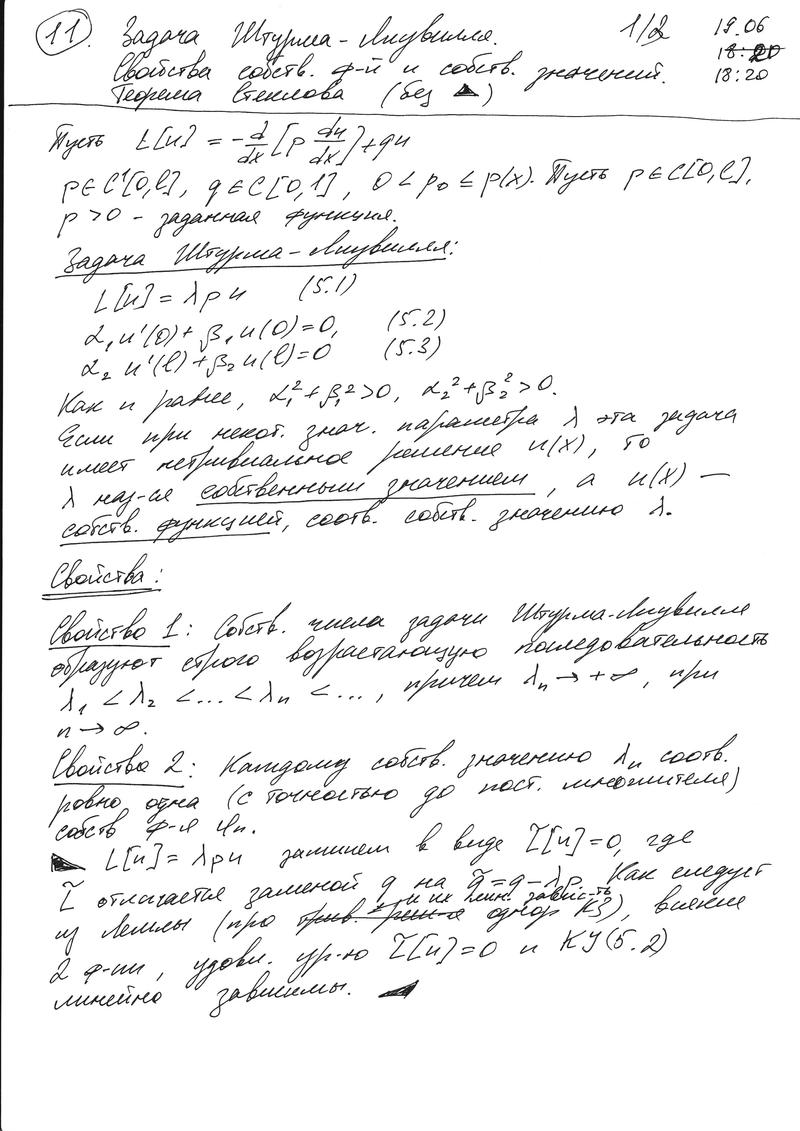 11. Задача Штурма-Лиувилля. 1/2 19.06
Свойства собств. ф-й и собств. значений. 18:20
Теорема Стеклова (без ▲) 18:20
Пусть L[u] = -d/dx [p du/dx] + qu
p∈C¹[0,l], q∈C[0,1], 0 < p₀ ≤ p(x). Пусть ρ∈C[0,l],
ρ > 0 - заданная функция.
Задача Штурма-Лиувилля:
L[u] = λρu (5.1)
α₁u'(0) + β₁u(0) = 0, (5.2)
α₂u'(l) + β₂u(l) = 0 (5.3)
Как и ранее, α₁² + β₁² > 0, α₂² + β₂² > 0.
Если при некот. знач. параметра λ эта задача
имеет нетривиальное решение u(x), то
λ наз-ся собственным значением, а u(x) —
собств. функцией, соотв. собств. значению λ.
Свойства:
Свойство 1: Собств. числа задачи Штурма-Лиувилля
образуют строго возрастающую последовательность
λ₁ < λ₂ < ... < λₙ < ..., причем λₙ → +∞, при
n → ∞.
Свойство 2: Каждому собств. значению λₙ соотв.
ровно одна (с точностью до пост. множителя)
собств ф-я uₙ.
L[u] = λρu запишем в виде L̃[u] = 0, где
L̃ отличается заменой q на q̃ = q - λρ. Как следует
и их лин. завис-ть
из Леммы (про трив. реш-я однор КЗ), всякие
2 ф-ии, удовл. ур-ю L̃[u] = 0 и КУ (5.2)
линейно зависимы.